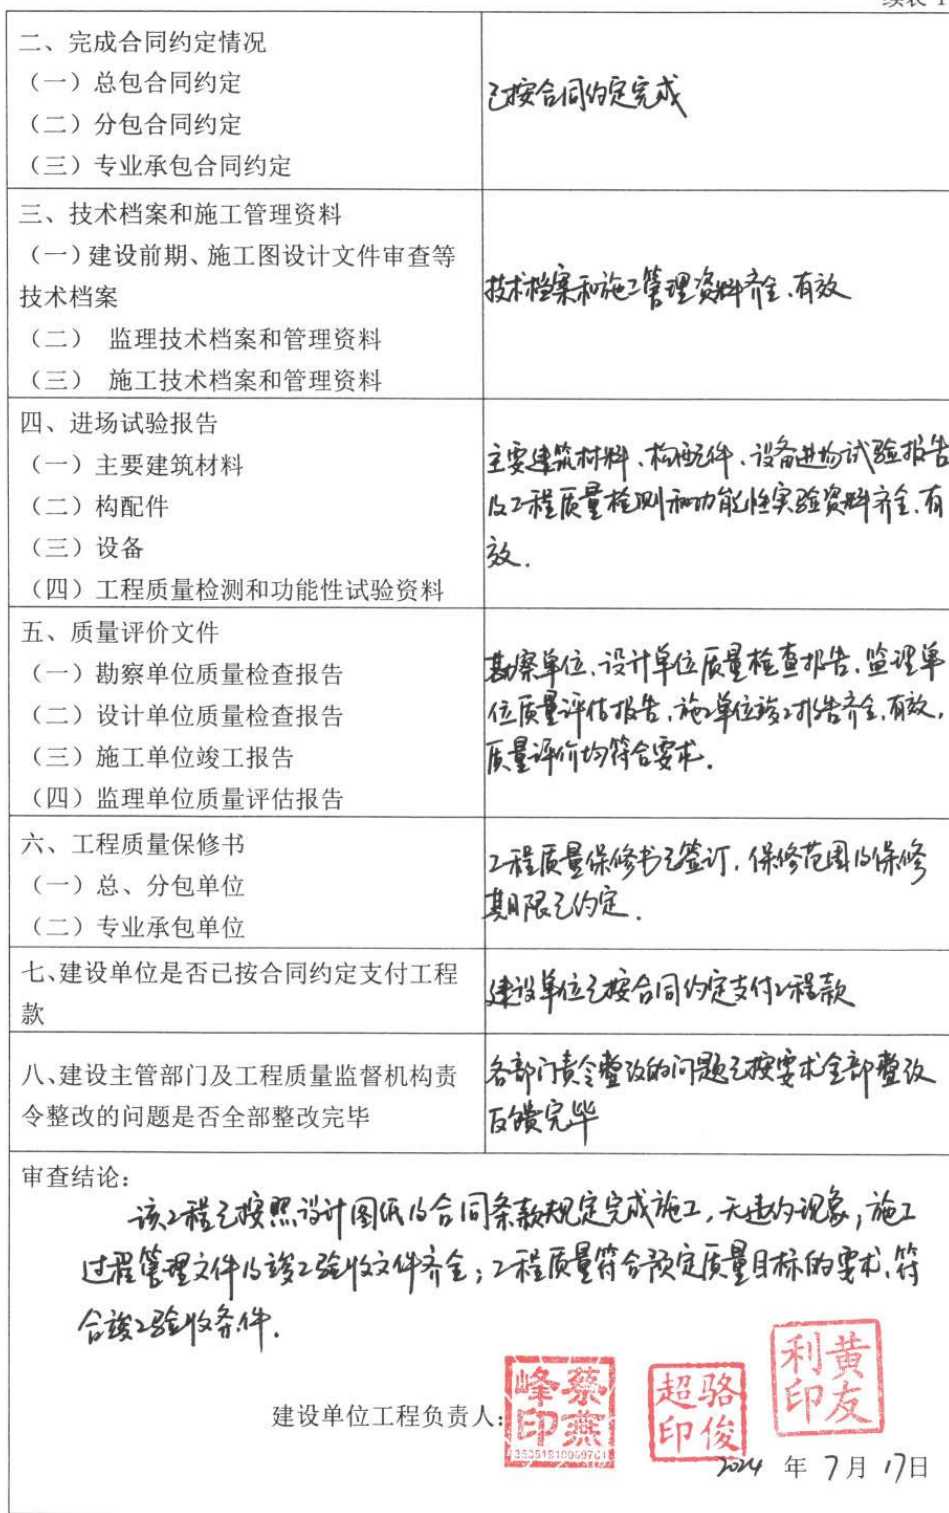 续表 1
二、完成合同约定情况
（一）总包合同约定
（二）分包合同约定
（三）专业承包合同约定
已按合同约定完成
三、技术档案和施工管理资料
（一）建设前期、施工图设计文件审查等
技术档案
（二） 监理技术档案和管理资料
（三） 施工技术档案和管理资料
技术档案和施工管理资料齐全、有效
四、进场试验报告
（一）主要建筑材料
（二）构配件
（三）设备
（四）工程质量检测和功能性试验资料
主要建筑材料、构配件、设备进场试验报告
及工程质量检测和功能性实验资料齐全、有
效.
五、质量评价文件
（一）勘察单位质量检查报告
（二）设计单位质量检查报告
（三）施工单位竣工报告
（四）监理单位质量评估报告
勘察单位、设计单位质量检查报告、监理单
位质量评估报告、施工单位竣工报告齐全、有效,
质量评价均符合要求.
六、工程质量保修书
（一）总、分包单位
（二）专业承包单位
工程质量保修书已签订, 保修范围及保修
期限已约定.
七、建设单位是否已按合同约定支付工程
款
建设单位已按合同约定支付工程款
八、建设主管部门及工程质量监督机构责
令整改的问题是否全部整改完毕
各部门责令整改的问题已按要求全部整改
反馈完毕
审查结论：
该工程已按照设计图纸及合同条款规定完成施工, 无违约现象, 施工
过程管理文件及竣工验收文件齐全; 工程质量符合预定质量目标的要求、符
合竣工验收条件.
建设单位工程负责人:
蔡燕峰印
骆俊超印
黄友利印
2024 年 7月 17日